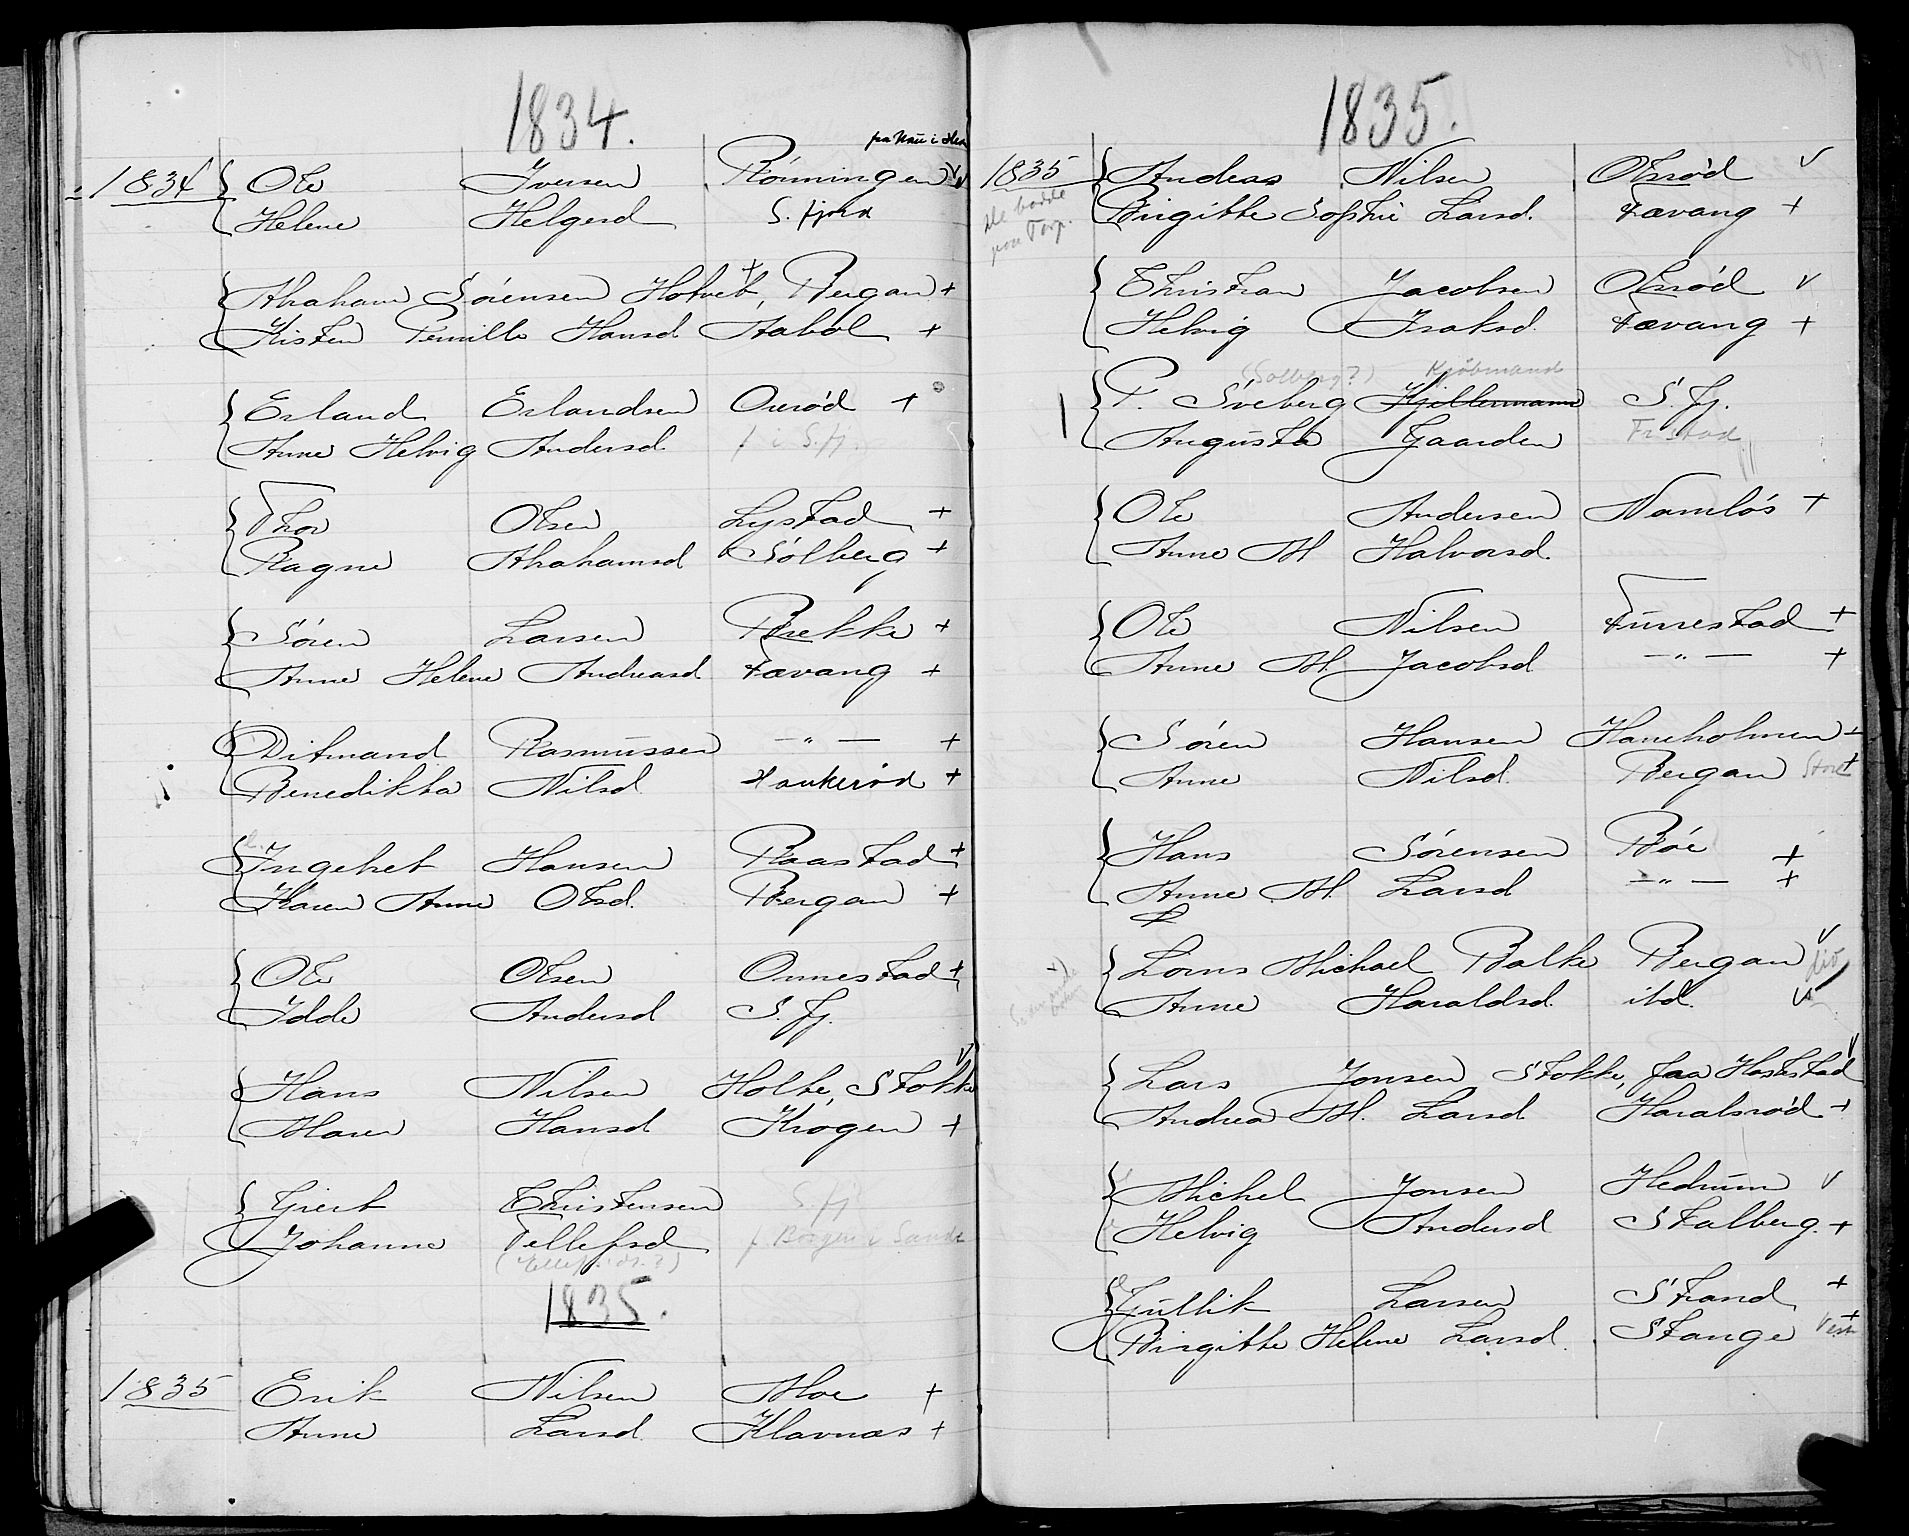 1834.
1834 Ole Iversen Rönningen
Helene Helgesd S. fjord
Abraham Sörensen Hotvet, Bergan +
Kisten Pernille Hansd Stabol +
Erland Erlandsen Oserød +
Anne Helvig Andersd f i S. fj.
Thor Olsen Lystad +
Ragne Abrahamsd Solberg +
Sören Larsen Brekke +
Anne Helene Andreasd Fævang +
Ditmand Rasmussen — " — +
Benedikta Nilsd Haukeröd +
Ingebret Hansen Raastad +
Karen Anne Olsd. Bergan +
Ole Olsen Onnestad +
Idde Andersd S. fj.
Hans Nilsen Holte, Stokke
Maren Hansd Krogen +
Giert Christensen S. fj
Johanne Tellefsd f Borgen i Sande
1835.
1835 Erik Nilsen Moe +
Anne Larsd. Klavnæs +
1835.
1835 Andreas Nilsen Olsröd v
De bodde paa Torp.
Birgitte Sophie Larsd. Fævang +
Christian Jacobsen Olsröd v
Helvig Isaksd. Fævang +
(Solberg?) Kjöbmand
P. Sveberg Kjillermann S. fj.
Augusta Gaarden Fr.stad
Ole Andersen Namlös +
Anne M Halvorsd.
Ole Nilsen Furrestad +
Anne M. Jacobsd — " — +
Sören Hansen Haneholmen +
Anne Nilsd. Bergan Store +
Hans Sörensen Böe +
Anne M. Larsd — " — +
Lorns Michael Balke Bergan v
Anne Haraldsd. ibd. v
Lars Jonsen Stokke, fra Hastad v
Andrea M. Larsd Haralsröd +
Michel Jonsen Hedrum v
Helvig Andersd Stalberg. +
Gullik Larsen Strand +
Birgitte Helene Larsd. Stange Vestr +